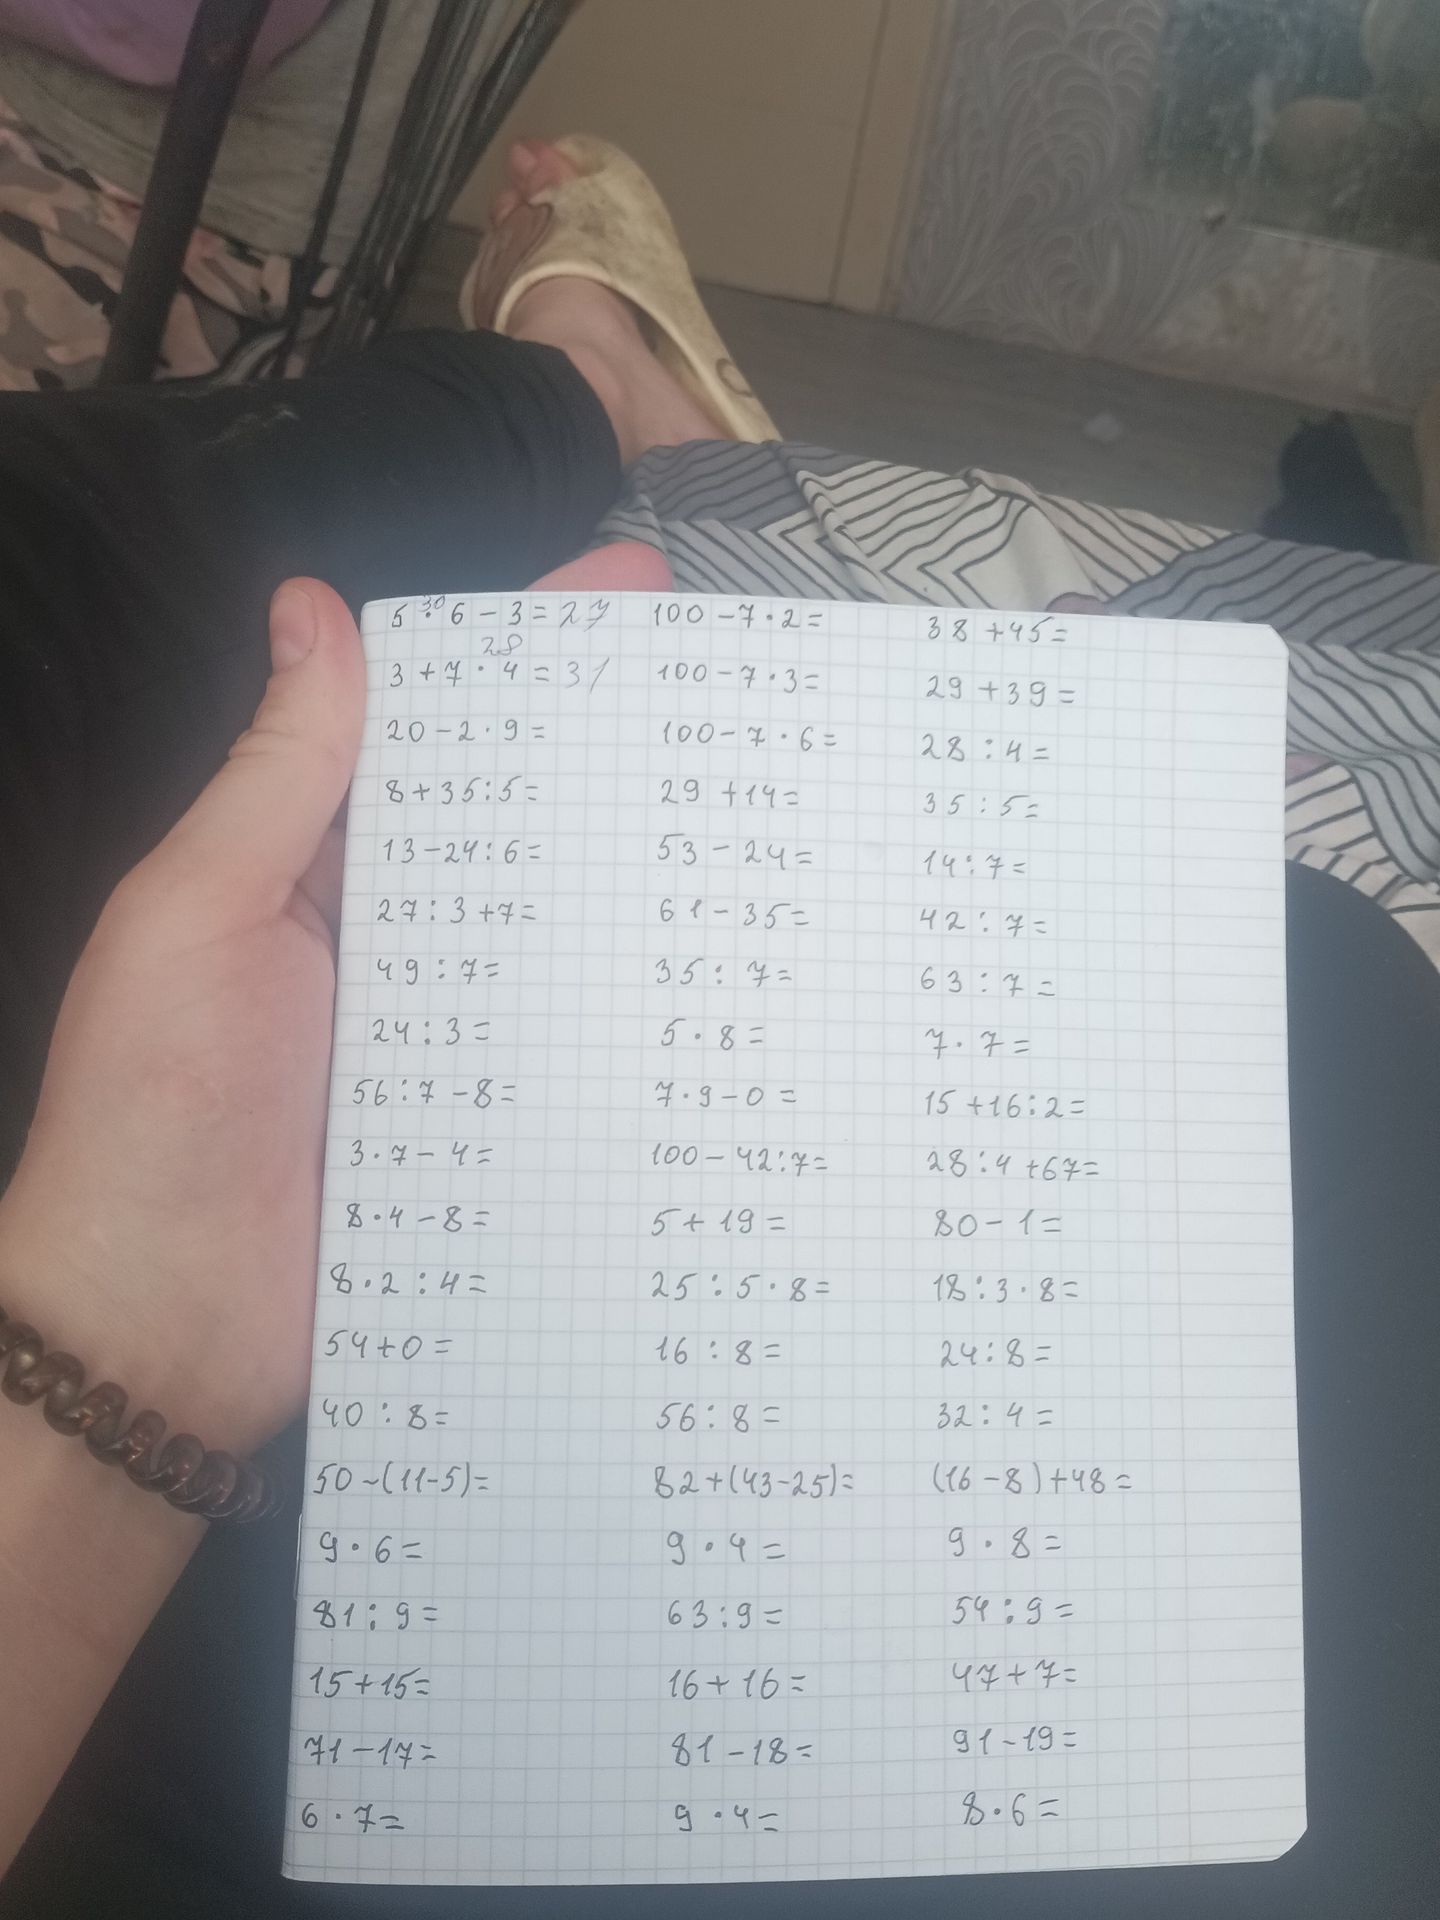 5 · 6 - 3 = 27 100 - 7 · 2 = 38 + 45 =
30
28
3 + 7 · 4 = 31 100 - 7 · 3 = 29 + 39 =
20 - 2 · 9 = 100 - 7 · 6 = 28 : 4 =
8 + 35 : 5 = 29 + 14 = 35 : 5 =
13 - 24 : 6 = 53 - 24 = 14 : 7 =
27 : 3 + 7 = 61 - 35 = 42 : 7 =
49 : 7 = 35 : 7 = 63 : 7 =
24 : 3 = 5 · 8 = 7 · 7 =
56 : 7 - 8 = 7 · 9 - 0 = 15 + 16 : 2 =
3 · 7 - 4 = 100 - 42 : 7 = 28 : 4 + 67 =
8 · 4 - 8 = 5 + 19 = 80 - 1 =
8 · 2 : 4 = 25 : 5 · 8 = 18 : 3 · 8 =
54 + 0 = 16 : 8 = 24 : 8 =
40 : 8 = 56 : 8 = 32 : 4 =
50 - (11 - 5) = 82 + (43 - 25) = (16 - 8) + 48 =
9 · 6 = 9 · 4 = 9 · 8 =
81 : 9 = 63 : 9 = 54 : 9 =
15 + 15 = 16 + 16 = 47 + 7 =
71 - 17 = 81 - 18 = 91 - 19 =
6 · 7 = 9 · 4 = 8 · 6 =